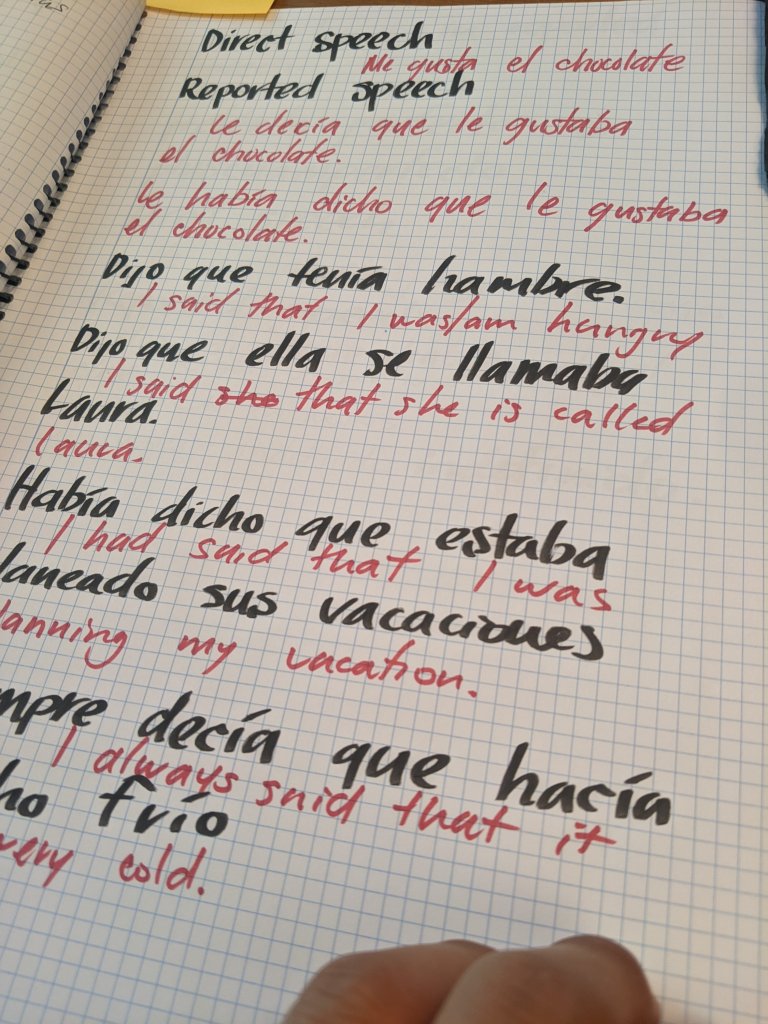 Direct speech
Me gusta el chocolate
Reported speech
Le decía que le gustaba
el chocolate.
Le había dicho que le gustaba
el chocolate.
Dijo que tenía hambre.
I said that I was/am hungry
Dijo que ella se llamaba
I said she that she is called
Laura.
Laura.
Había dicho que estaba
I had said that I was
laneado sus vacaciones
lanning my vacation.
mpre decía que hacía
I always said that it
ho frío
very cold.